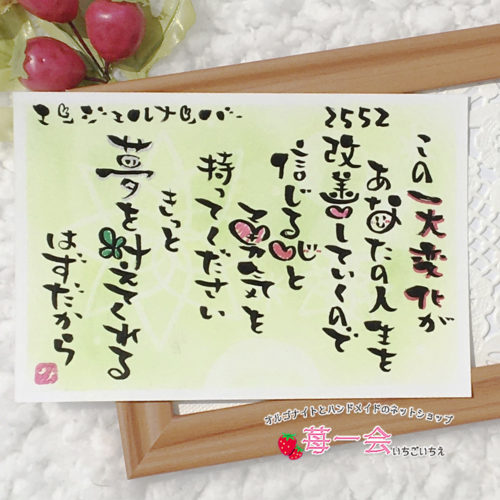 エンジェルナンバー
2552
この一大変化が
あなたの人生を
改善していくので
信じる心と
勇気を
持ってください
きっと
夢を叶えてくれる
はずだから
オルゴナイトとハンドメイドのネットショップ
苺一会
いちごいちえ